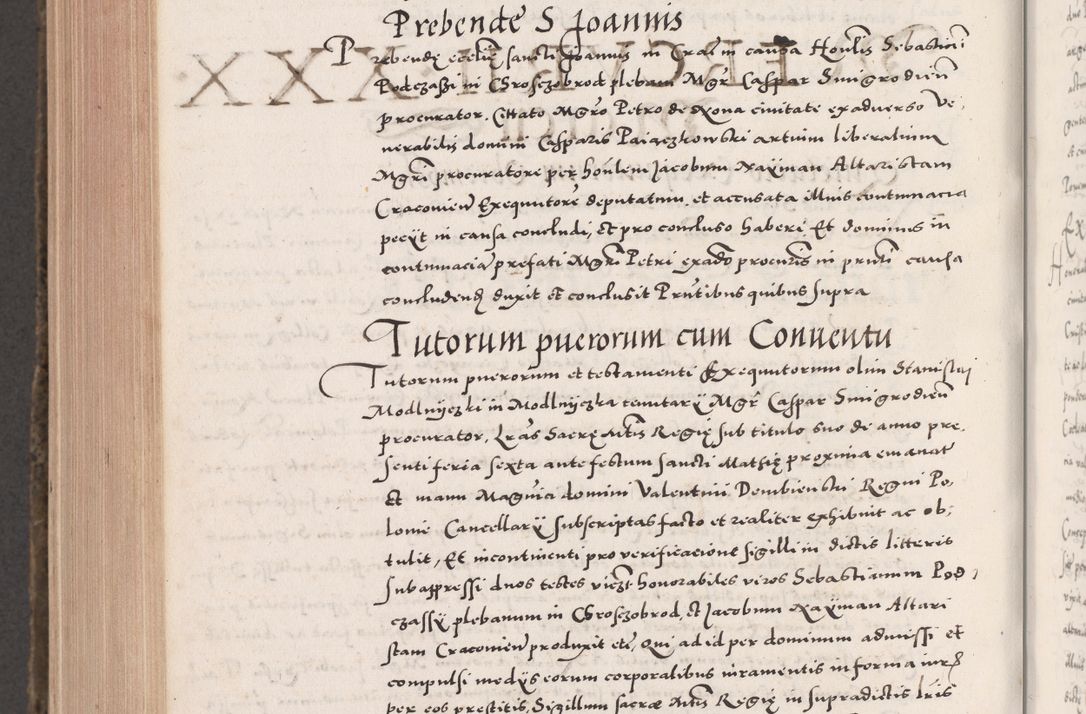 Prebende S Joannis
Prebendę ecclię sancti Joannis in Crac̃ in causa Honlis Sebastiani
Podczaski in Groszobrod plebani Mgr̃ Caspar Smigrodien̄
procurator, Citato Mgrõ Petro de Xona civitate exadverso Ve,
nerabilis domini Casparis Paiaczkowski artium liberalium
Mgri procuratore per honlem Jacobum Xayman Altaristam
Cracovien̄ Exequutorẽ deputatum, et accusata illius contumacia
pecÿt in causa concludi, et pro concluso haberi, Et dominus in
contumaciã prefati Mgri Petri exadõ procuris in pñti causa
concludend duxit et conclusit Pñtibus quibus supra
Tutorum puerorum cum Conventu
Tutorum puerorum et testamenti Exequutorum olim Stanislaj
Modlnÿczki in Modlnÿczka tenutarÿ Mgr̃ Caspar Smigrodien̄
procurator, Lrãs Sacrę Mtis Regię sub titulo suo de anno pre,
senti feria sexta ante festum sancti Mathię proxima emanat
Et manu Magñci domini Valentini Dembienski Regni Po,
lonie Cancellarÿ subscriptas facto et realiter exhibuit ac ob,
tulit, Et incontinenti pro verificacione sigilli in dictis litteris
subappressi duos testes viczt honorabiles viros Sebastianum Pod,
czassÿ plebanum in Groszobrod, et Jacobum Xayman Altari
stam Cracovien̄ produxit etc, Qui ad id per dominum admissi et
compulsi medÿs eorum corporalibus iuramentis in forma iurz
per eos prestitis, Sigillum sacrae Mtis Regię in supradictis Lris